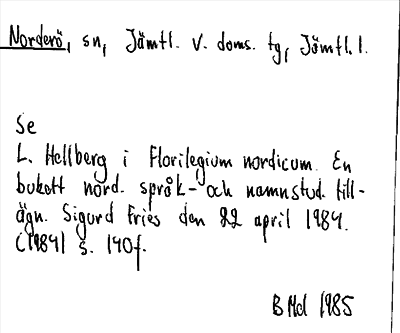 Norderö, sn, Jämtl. V. doms. tg, Jämtl. l.
Se
L. Hellberg i Florilegium nordicum. En
bukett nord. språk- och namnstud. till-
ägn. Sigurd Fries den 22 april 1984.
(1984) s. 140f.
BMd 1985